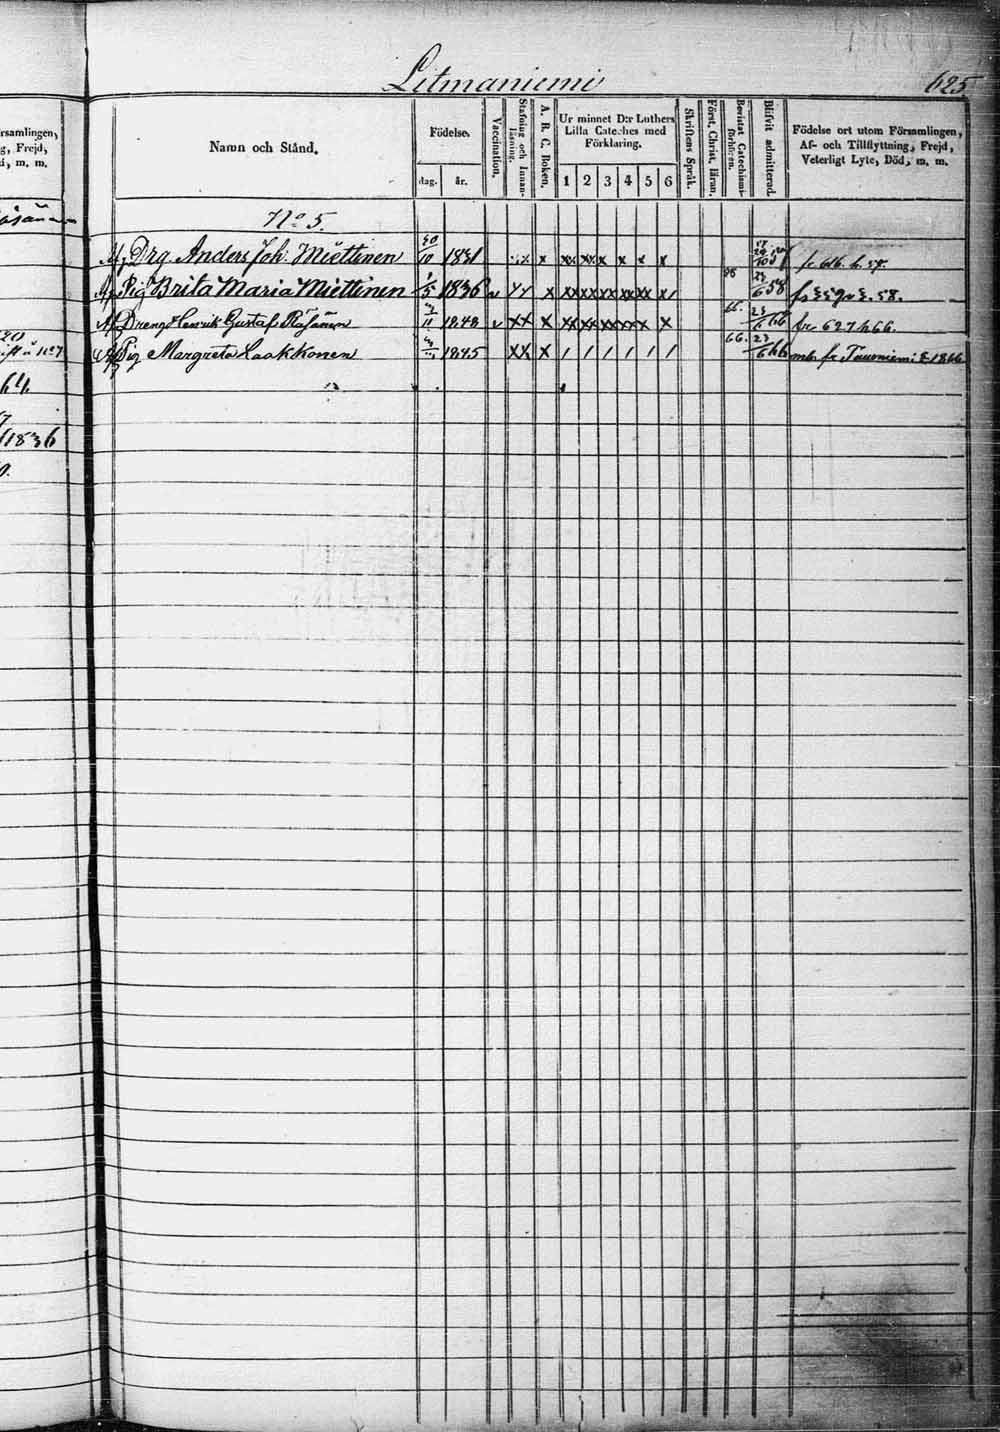 Litmaniemi
625.
rsamlingen,
g, Frejd,
m. m.
Namn och Stånd.
Födelse.
dag. år.
Vaccination.
Stafning och Innanläsning.
A. B. C. Boken.
Ur minnet D:r Luthers Lilla Cateches med Förklaring.
1 2 3 4 5 6
Skriftens Språk.
Först. Christ. läran.
Bevistat Catechismiförhören.
Blifvit admitterad.
Födelse ort utom Församlingen,
Af- och Tillflyttning, Frejd,
Veterligt Lyte, Död, m. m.
No 5.
Drg. Anders Joh. Miettinen 30/10 1831 x x xx xx x x x x fr 616. h. 57.
Pig Brita Maria Miettinen 1/5 1836 x xx xx xx xx xx x/ 58 23/6 58 58.
Dreng Henrik Gustaf Räsänen 11 1848 v xx x xx xx xx xx x x 66. 23/6 66 fr 627 h 66.
Pig Margreta Laakkonen 1845 xx x / / / / / / 66. 23/6 66 1866
64.
1836